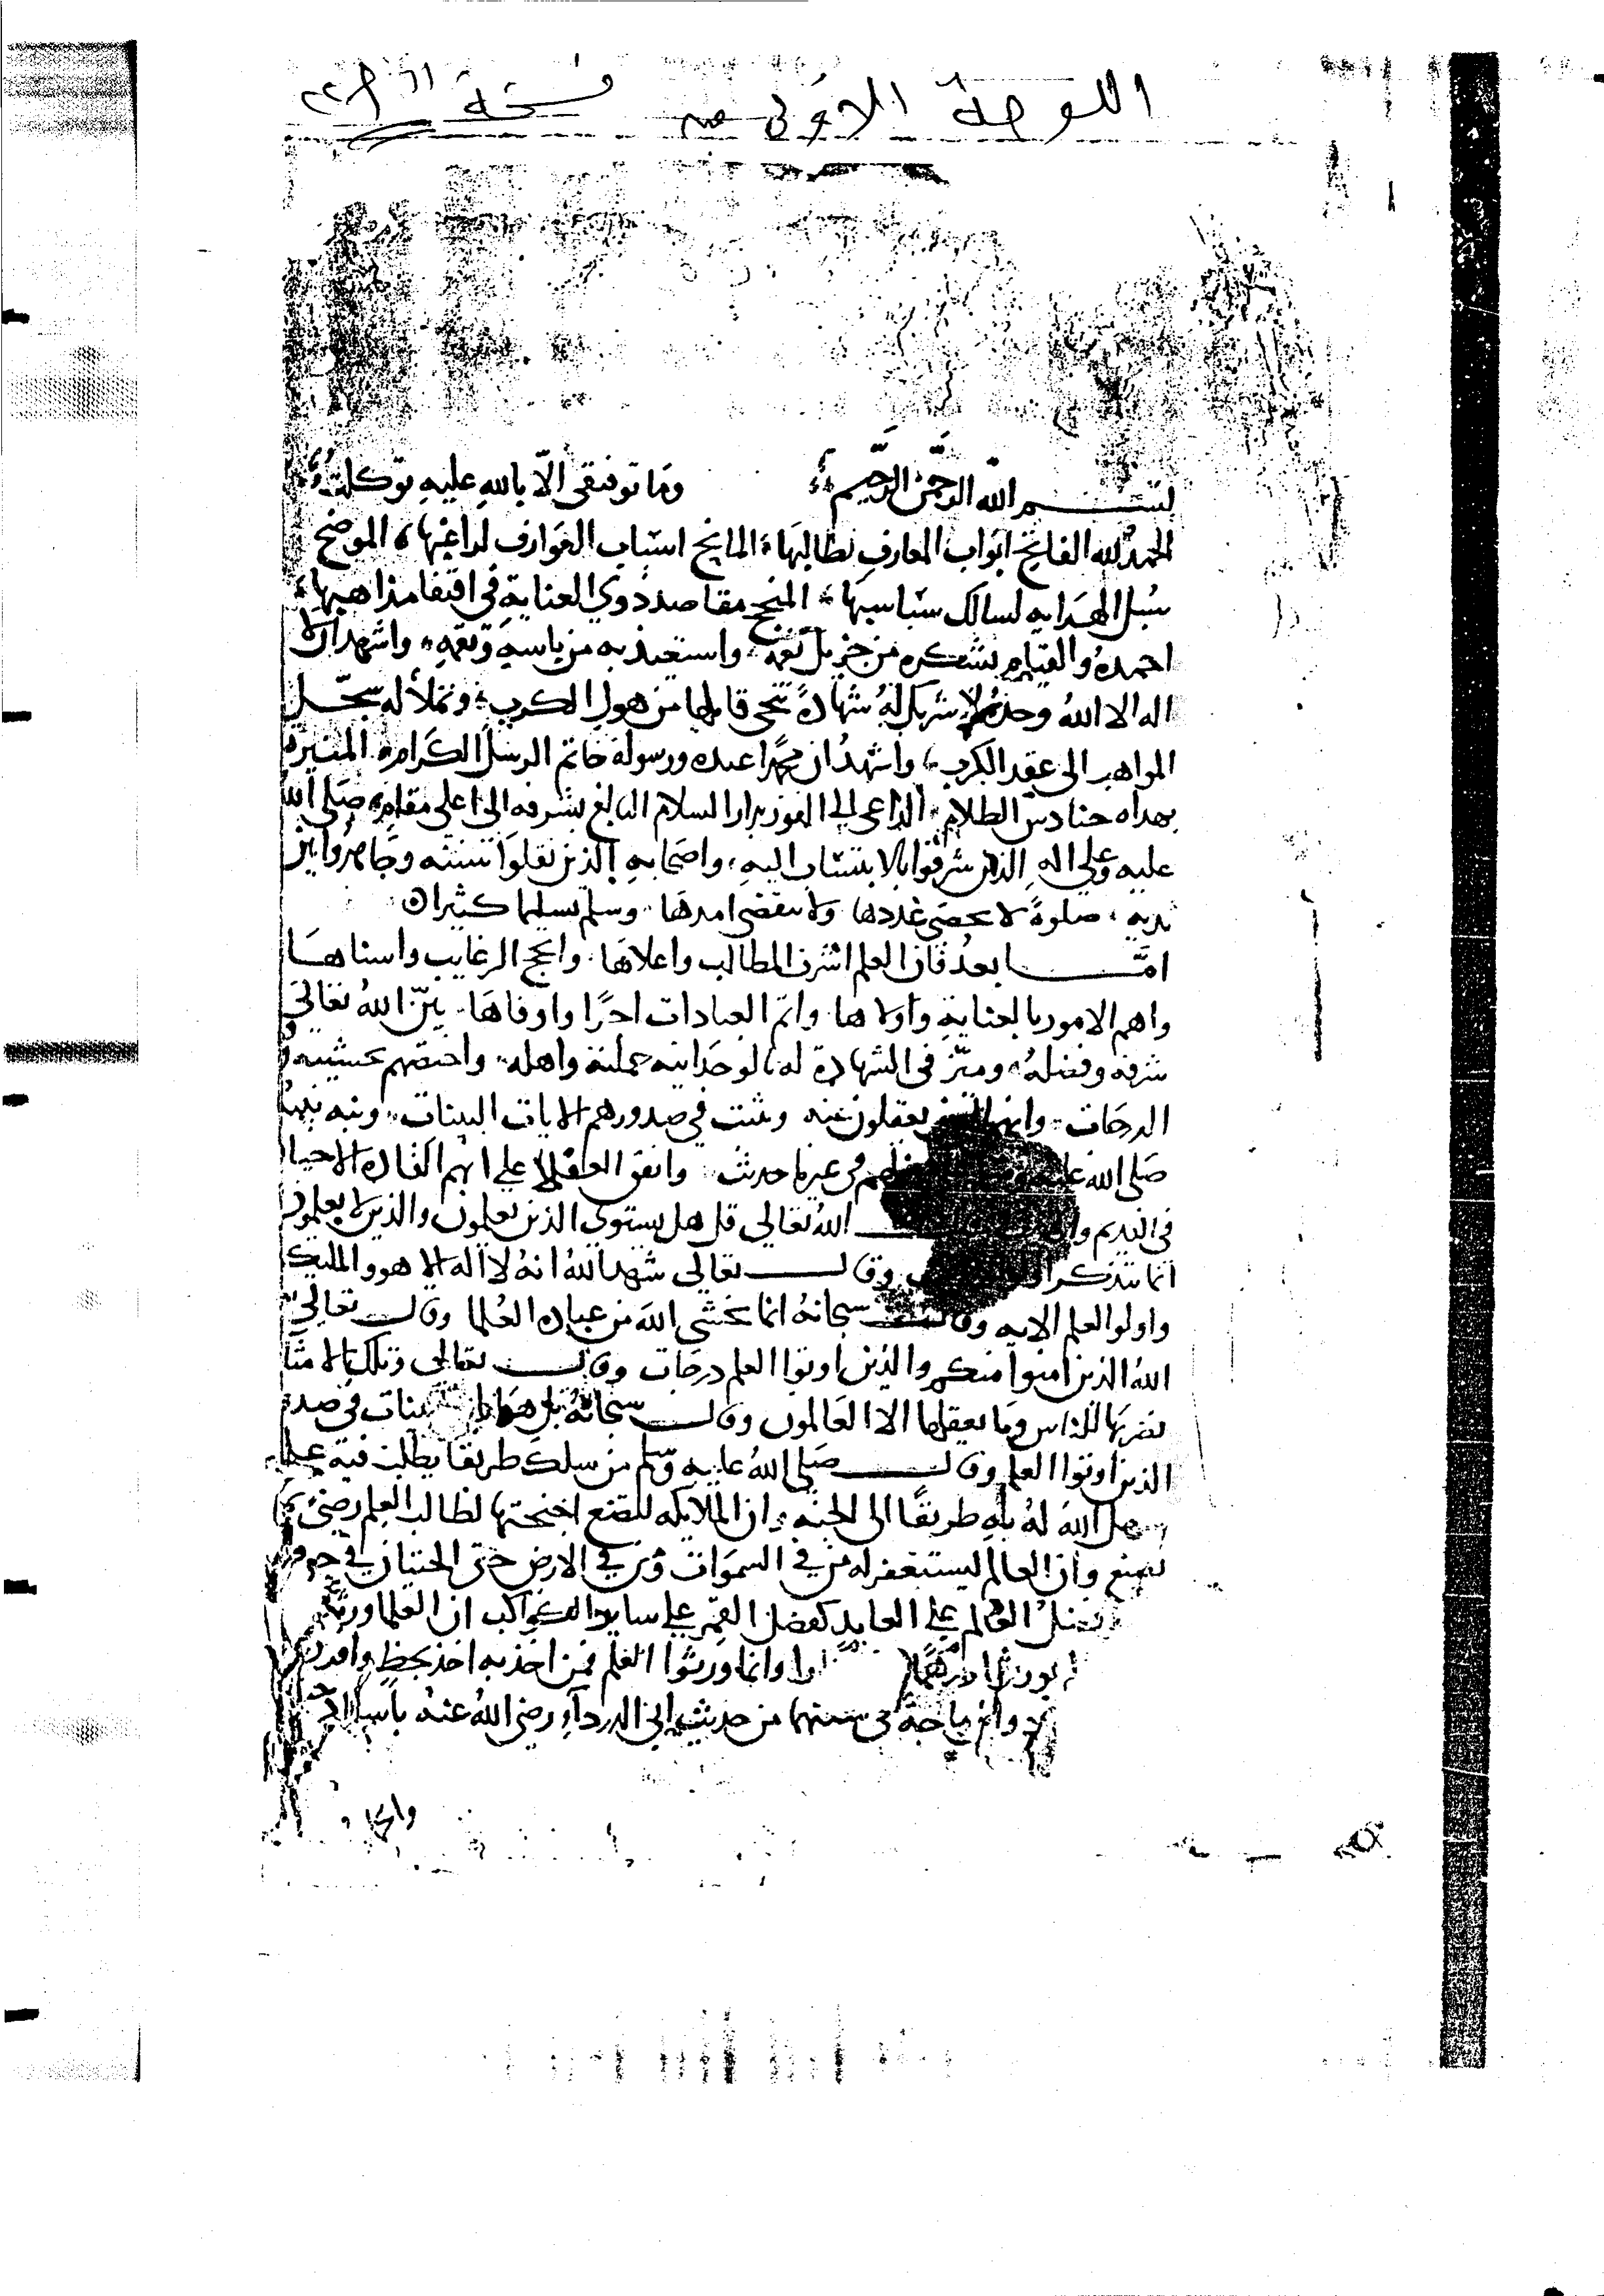 اللوحة الاولى من نسخة
بسم الله الرحمن الرحيم وما توفيقي الا بالله عليه توكلت
الحمد لله الفاتح ابواب المعارف لطالبها المانح اسباب العوارف لراغبها الموضح
سبل الهدايه لسالك سباسبها المنجح مقاصد ذوي العناية في اقتفا مذاهبها
احمده والقيام بشكره من جزيل نعمه واستعيذ به من باسه ونقمه واشهد ان لا
اله الا الله وحده لا شريك له شهادة تنجي قايلها من هول الكرب
المواهب الى عقد الكرب واشهد ان محمدا عبده ورسوله خاتم الرسل الكرام المنيرة
بهداه حنادس الظلام الداعي الى الفوز بدار السلام البالغ بشرفه الى اعلى مقام صلى الله
عليه وعلى اله الذين شرفوا بالانتساب اليه واصحابه الذين نقلوا سنته وجاهدوا بين
يديه صلوة لا يحصى عددها ولا ينقضي امدها وسلم تسليما كثيرا
اما بعد فان العلم اشرف المطالب واعلاها وانجح الرغايب واسناها
واهم الامور بالعناية واولاها واتم العبادات اجرا واوفاها بين الله تعالى
شرفه وفضله وميز في الشهادة له بالوحدانيه حملته واهله واختصهم بخشيته
الدرجات وانهم الذين يعقلون عنه وثبت في صدورهم الايات البينات ونبه نبيه
صلى الله عليه في غير ما حديث واتفق العقلا على انهم القادة الاحيا
في القديم الله تعالى قل هل يستوي الذين يعلمون والذين لا يعلمون
انما يتذكر وقال تعالى شهد الله انه لا اله الا هو والمليكة
واولوا العلم الايه وقال سبحانه انما يخشى الله من عباده العلما وقال تعالى
الله الذين امنوا منكم والذين اوتوا العلم درجات وقال تعالى وتلك الامثال
نضربها للناس وما يعقلها الا العالمون وقال سبحانه بل هو ايات بينات في صدور
الذين اوتوا العلم وقال صلى الله عليه وسلم من سلك طريقا يطلب فيه علما
سهل الله له به طريقا الى الجنه وان الملايكه لتضع اجنحتها لطالب العلم رضى بما
يصنع وان العالم ليستغفر له من في السموات ومن في الارض حتى الحيتان في جوف
فضل العالم على العابد كفضل القمر على ساير الكواكب ان العلما ورثة
يورثوا درهما وانما ورثوا العلم فمن اخذ به اخذ بحظ وافر
وابن ماجة في سننهما من حديث ابي الدرداء رضي الله عنه